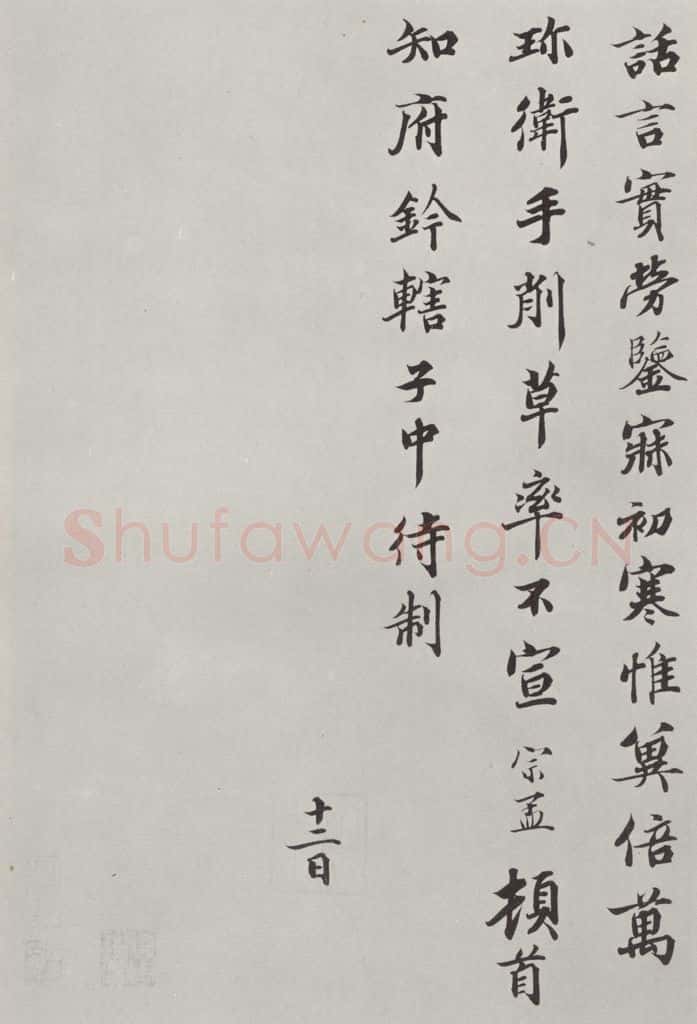 話言實勞鑒寐初寒惟兾倍萬
珎衛手削草率不宣宗孟頓首
知府鈐轄子中待制
十二日
Shufawang.CN